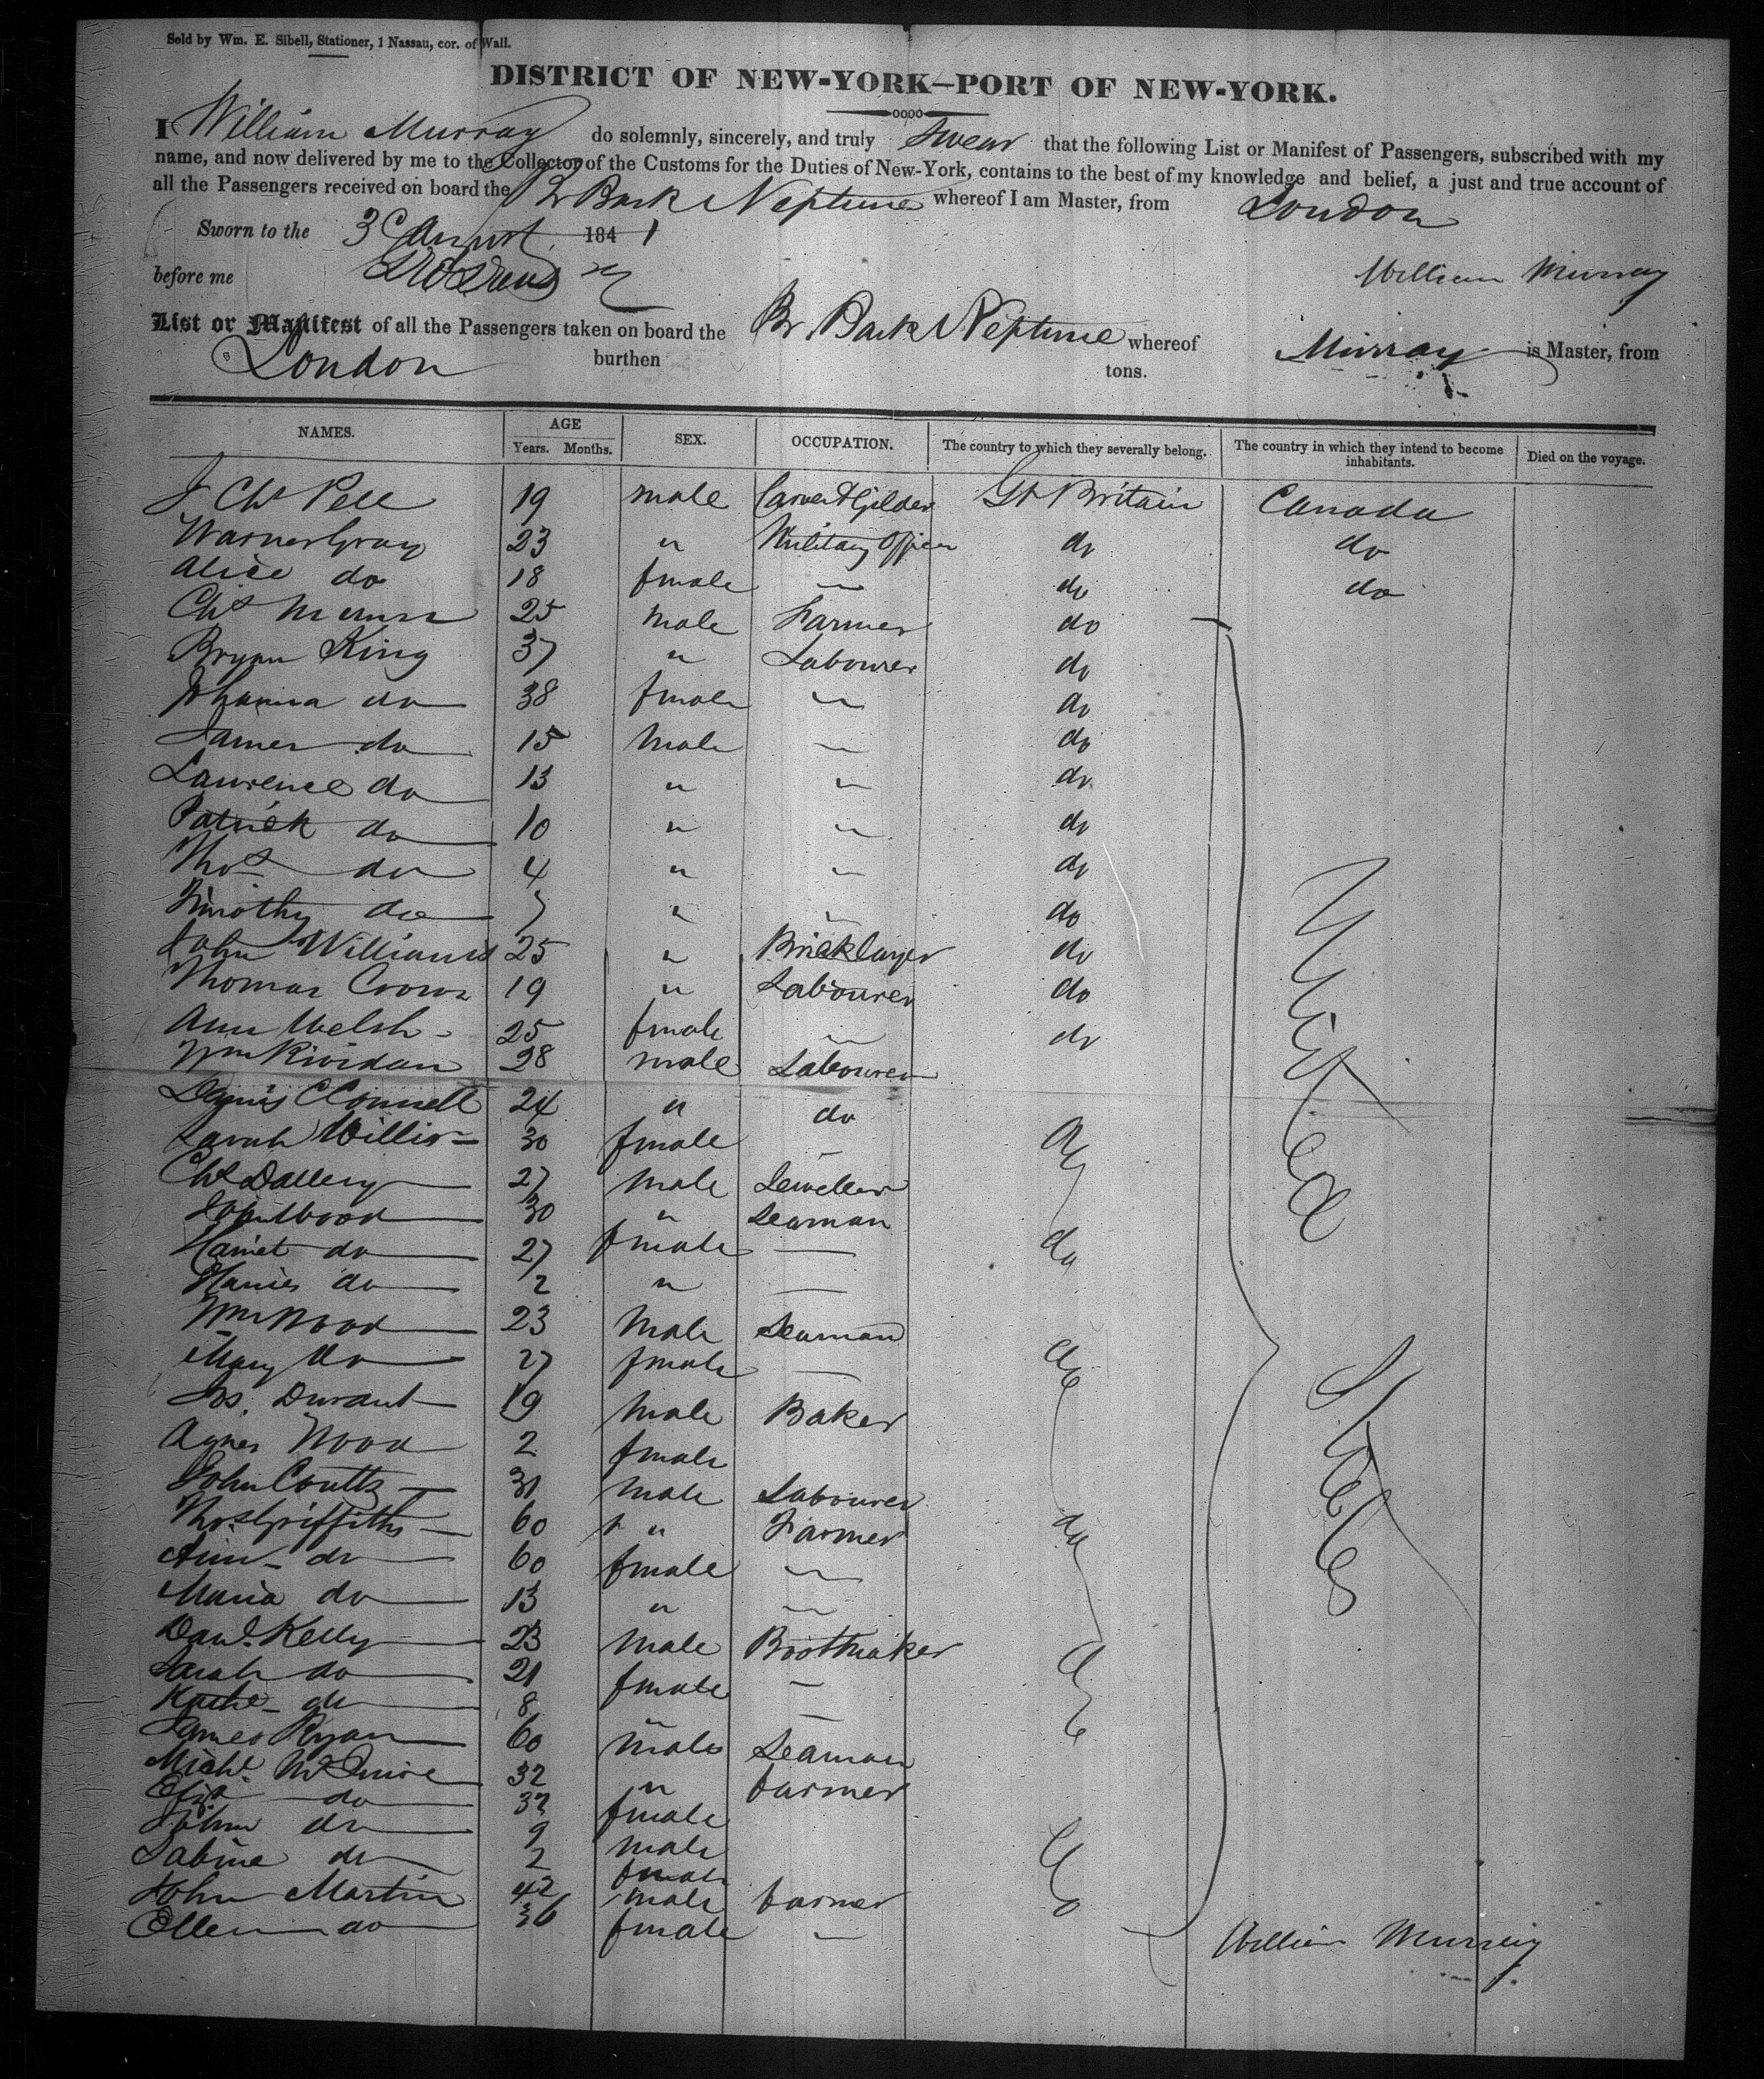 Sold by Wm. E. Sibell, Stationer, 1 Nassau, cor. of Wall.
DISTRICT OF NEW-YORK—PORT OF NEW-YORK.
I William Murray do solemnly, sincerely, and truly swear that the following List or Manifest of Passengers, subscribed with my
name, and now delivered by me to the Collector of the Customs for the Duties of New-York, contains to the best of my knowledge and belief, a just and true account of
all the Passengers received on board the Br Bark Neptune whereof I am Master, from London
Sworn to the 3 August 1841
before me William Murray
List or Manifest of all the Passengers taken on board the Br. Bark Neptune whereof Murray is Master, from
London burthen tons.
NAMES. AGE Years. Months. SEX. OCCUPATION. The country to which they severally belong. The country in which they intend to become inhabitants. Died on the voyage.
J Chs Pell 19 male Carver & Gilder Gt Britain Canada
Warner Gray 23 " Military Officer do do
Alice do 18 female — do do
Chs 25 male Farmer do
Bryan King 37 " Labourer do
Johanna do 38 female — do
James do 15 male — do
Laurence do 13 " — do
Patrick do 10 " — do
Thos do 4 " — do
Timothy do 7 " — do
John Williams 25 " Bricklayer do
Thomas 19 " Labourer do
Ann Welsh 25 female — do
Wm Rividan 28 male Labourer
Dennis OConnell 24 " do
Sarah Willis 30 female — do
Chs Dallery 27 male Jeweller
John Wood 30 " Seaman
Harriet do 27 female — do
do 2 " —
Wm Wood 23 male Seaman
Mary do 27 female — do
Jos. Durant 19 male Baker
Agnes Wood 2 female
John Coutts 31 male Labourer
Thos Griffiths 60 " Farmer do
Ann do 60 female —
Maria do 13 " —
Danl. Kelly 23 male Bootmaker do
Sarah do 21 female —
do 8 " —
James Ryan 60 male Seaman
Michl. McGuire 32 " farmer
Eliza do 32 female
John do 9 male
Sabina do 2 female
John Martin 42 male farmer
Ellen do 36 female —
United
States
William Murray